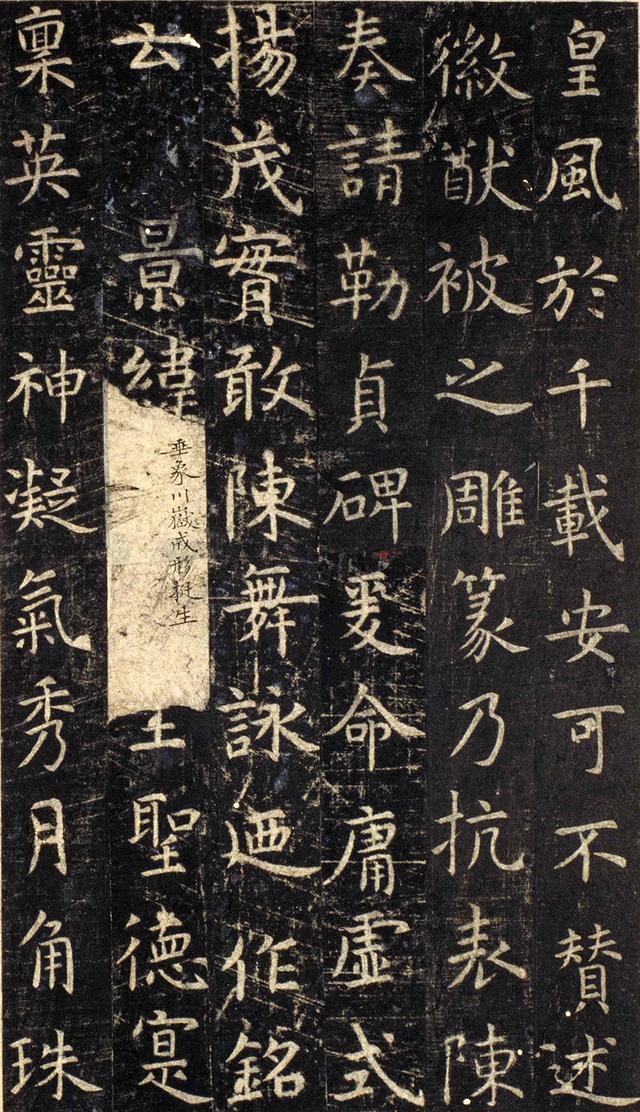 皇風於千載安可不賛述
徽猷被之雕篆乃抗表陳
奏請勒貞碑爰命庸虛式
揚茂實敢陳舞詠迺作銘
云 景緯
垂象川嶽成形挺生
聖德寔
稟英靈神凝氣秀月角珠